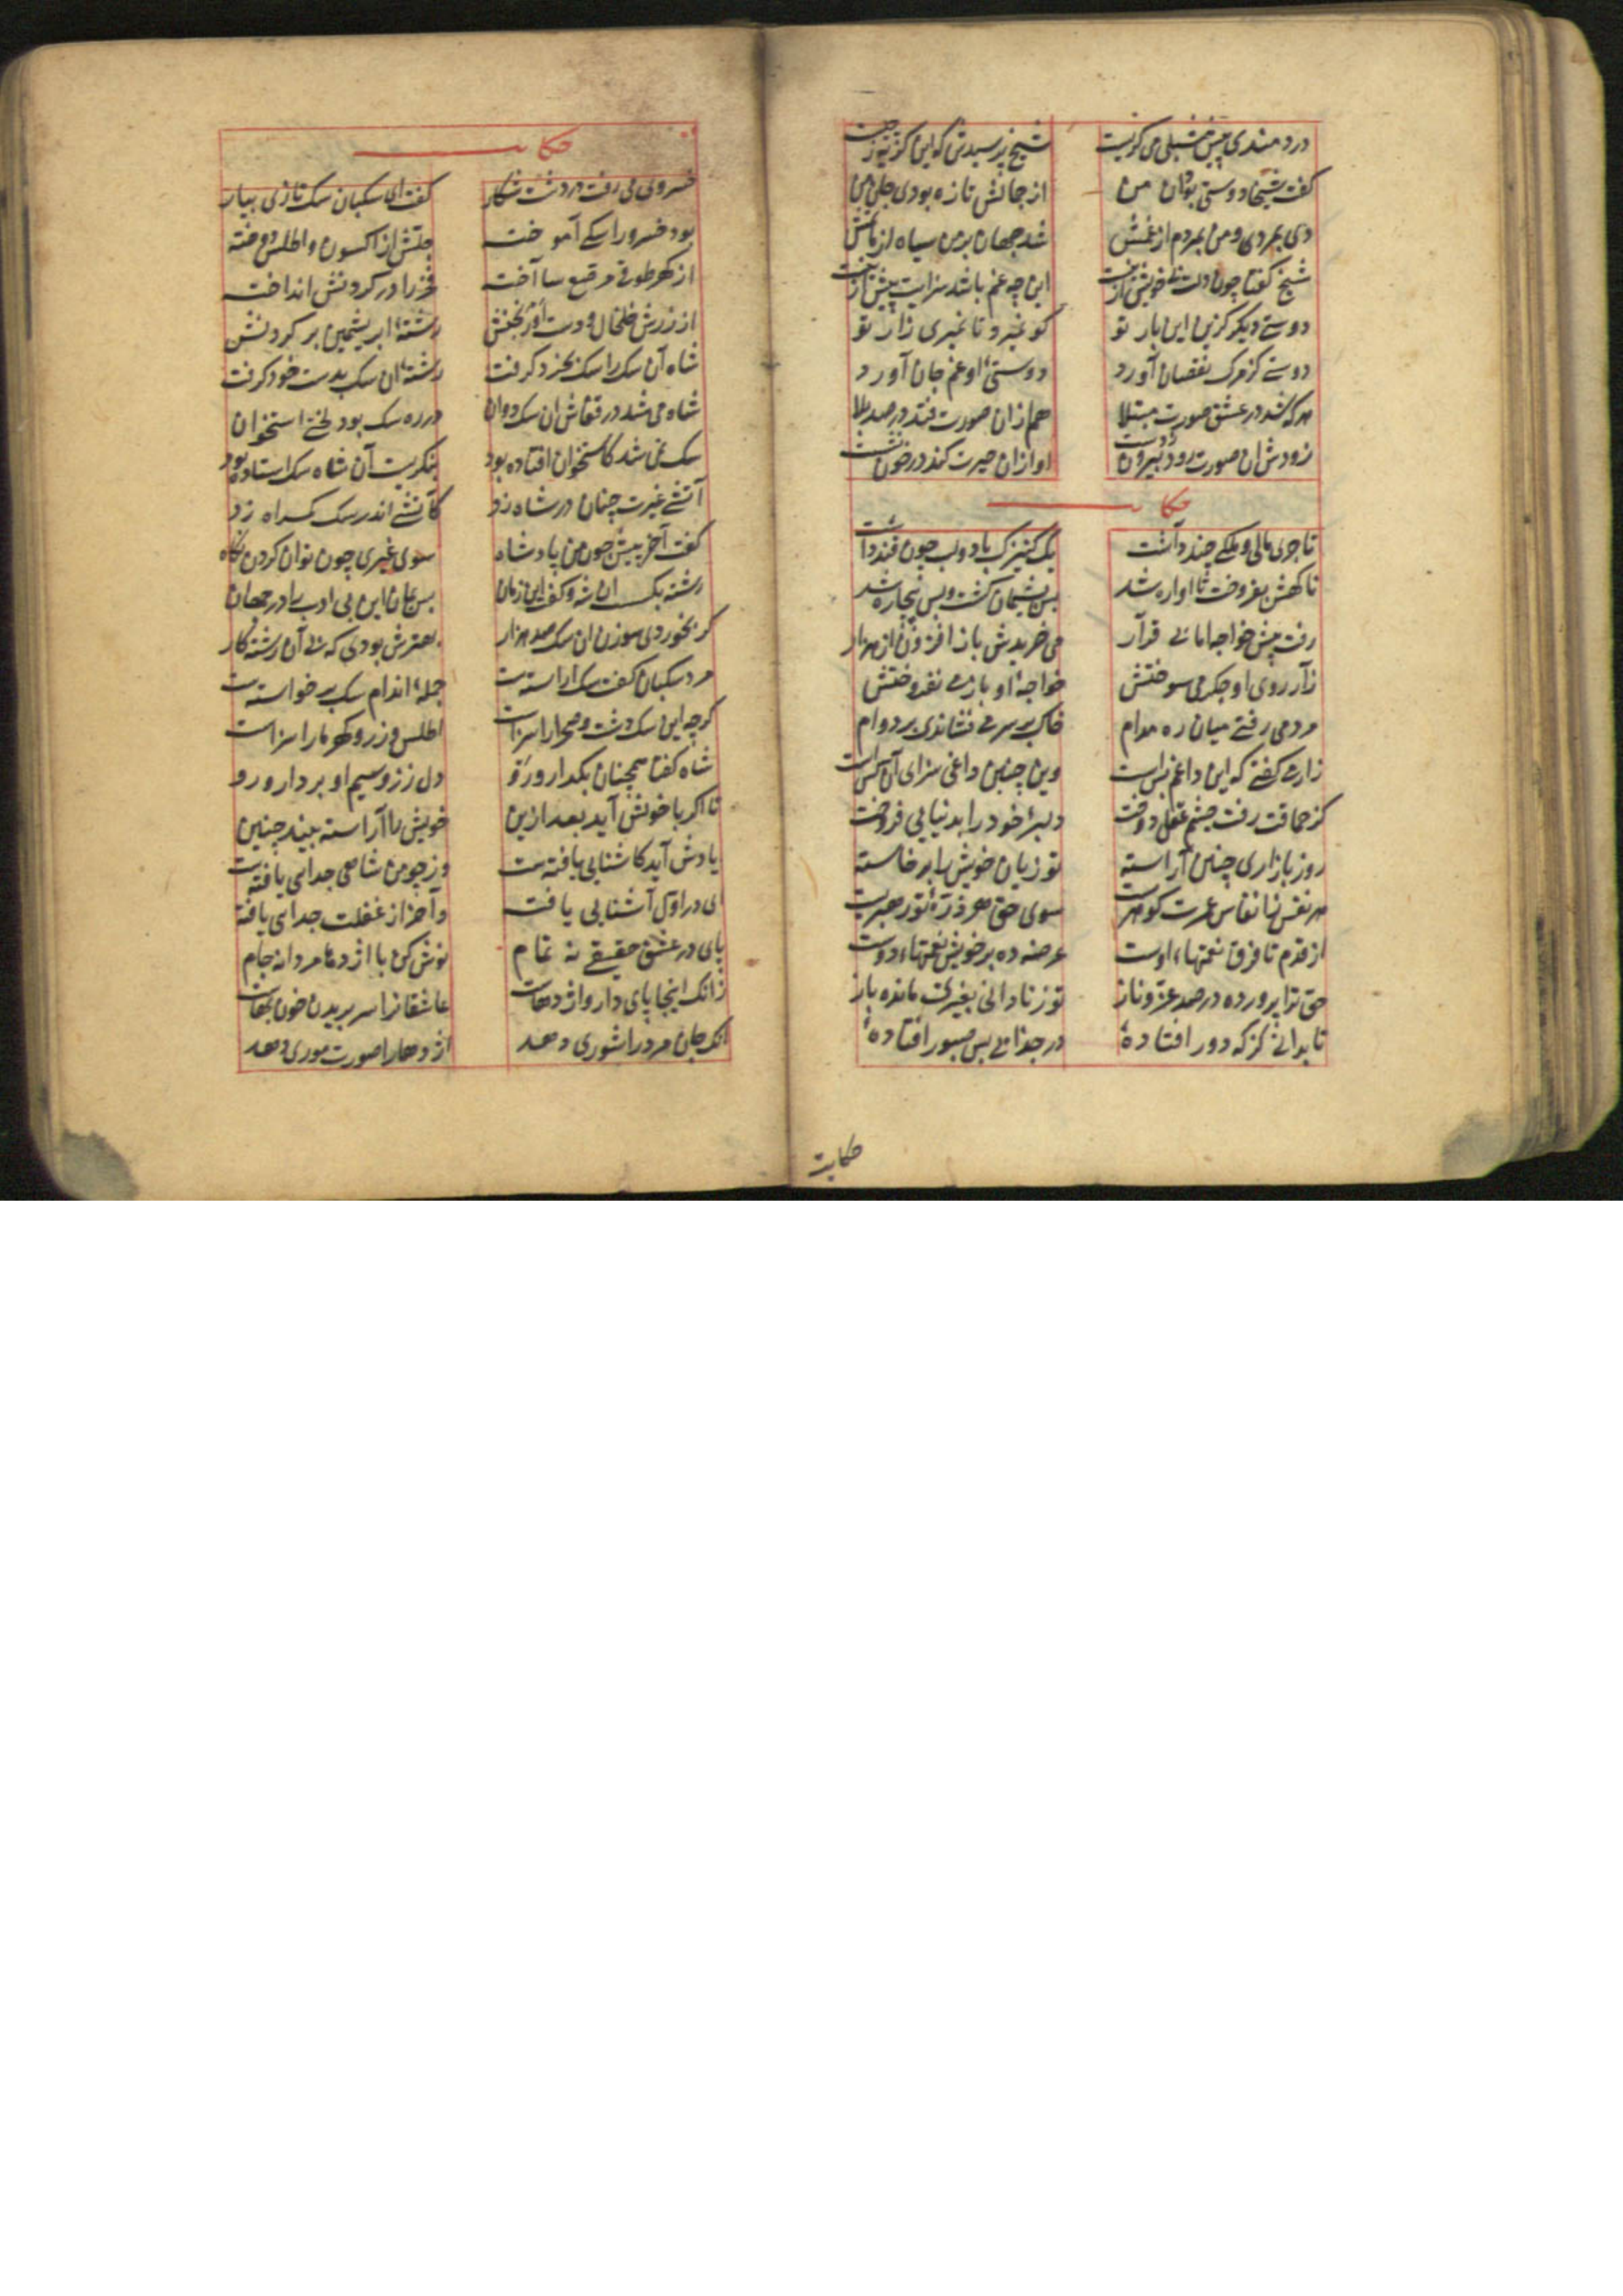 دردمندی پیش شبلی می گریست شیخ پرسیدش که این گریه ز چیست
گفت شیخا دوستی بود آن من از جمالش تازه بودی جان من
دی بمردی و من بمردم از غمش شد جهان بر من سیاه از ماتمش
شیخ گفتا چون دلت بی خویش ازینست این چه غم باشد سزایت بیش ازینست
دوستی دیگر گزین این بار تو کو نمیرد تا نمیری زار تو
دوستی کز مرگ نقصان آورد دوستی او غم جان آورد
هرکه شد در عشق صورت مبتلا هم از آن صورت فتد در صد بلا
زودش آن صورت رود بیرون ز دست او از آن حیرت کند در خون نشست
حکایت
تاجری مالی و ملکی چند داشت یک کنیزک با دو لب چون قند داشت
ناگهش بفروخت تا آواره شد بس پشیمان گشت و بس بیچاره شد
رفت پیش خواجه اما بی قرار می خریدش باز افزون از هزار
ز آرزوی او جگر می سوختش خواجهٔ او باز می نفروختش
مردمی رفتی میان ره مدام خاک بر سر می فشاندی بر دوام
زار می گفتی که این داغم بس است وین چنین داغی سزای آن کس است
کز حماقت رفت چشم عقل دوخت دلبر خود را بدنیایی فروخت
روز بازاری چنین آراسته تو زیان خویش را برخاسته
هر نفس ز انفاس عمرت گوهریست سوی حق هر ذرهٔ تو رهبریست
از قدم تا فرق نعمتهاء اوست عرضه ده بر خویش نعمتهاء دوست
حق ترا پرورده در صد عز و ناز تو ز نادانی بغیری مانده باز
تا بدانی کز که دور افتادهٔ در جدایی بس صبور افتادهٔ
حکایت
حکایت
خسروی می رفت در دشت شکار گفت ای سگبان سگ تازی بیار
بود خسرو را سگی آموخته جلش از اکسون و اطلس دوخته
از گهر طوقی مرصع ساخته فخر را در گردنش انداخته
از زرش خلخال و دست آورنجنش رشتهٔ ابریشمین بر گردنش
شاه آن سگ را سگ بخرد گرفت رشتهٔ آن سگ بدست خود گرفت
شاه می شد در قفاش آن سگ دوان در ره سگ بود لختی استخوان
سگ نمی شد کاستخوان افتاده بود بنگریست آن شاه سگ استاده بود
آتش غیرت چنان در شاه زد کآتشی اندر سگ گمراه زد
گفت آخر پیش چون من پادشاه سوی غیری چون توان کردن نگاه
رشته بگسست آن شه و گفت این زمان پس بمان این بی ادب را در جهان
گر بخوردی سوزن آن سگ صد هزار بهترش بودی که بی آن رشته کار
مرد سگبان گفت سگ آراسته ست جمله اندام سگ پر خواسته ست
گرچه این سگ دشت و صحرا را سزاست اطلس و زر و گهر ما را سزاست
شاه گفتا همچنان بگذار و رو دل ز زر و سیم او بردار و رو
تا اگر با خویش آید بعد ازین خویش را آراسته بیند چنین
یادش آید کاشنایی یافته ست وز چو من شاهی جدایی یافته ست
ای در اول آشنایی یافته و آخر از غفلت جدایی یافته
پای در عشق حقیقی نه تمام نوش کن با اژدها مردانه جام
زانک اینجا پای دار و اژدهاست عاشقان را سر بریدن خون بهاست
آنک جان مرد را شوری دهد اژدها را صورت موری دهد